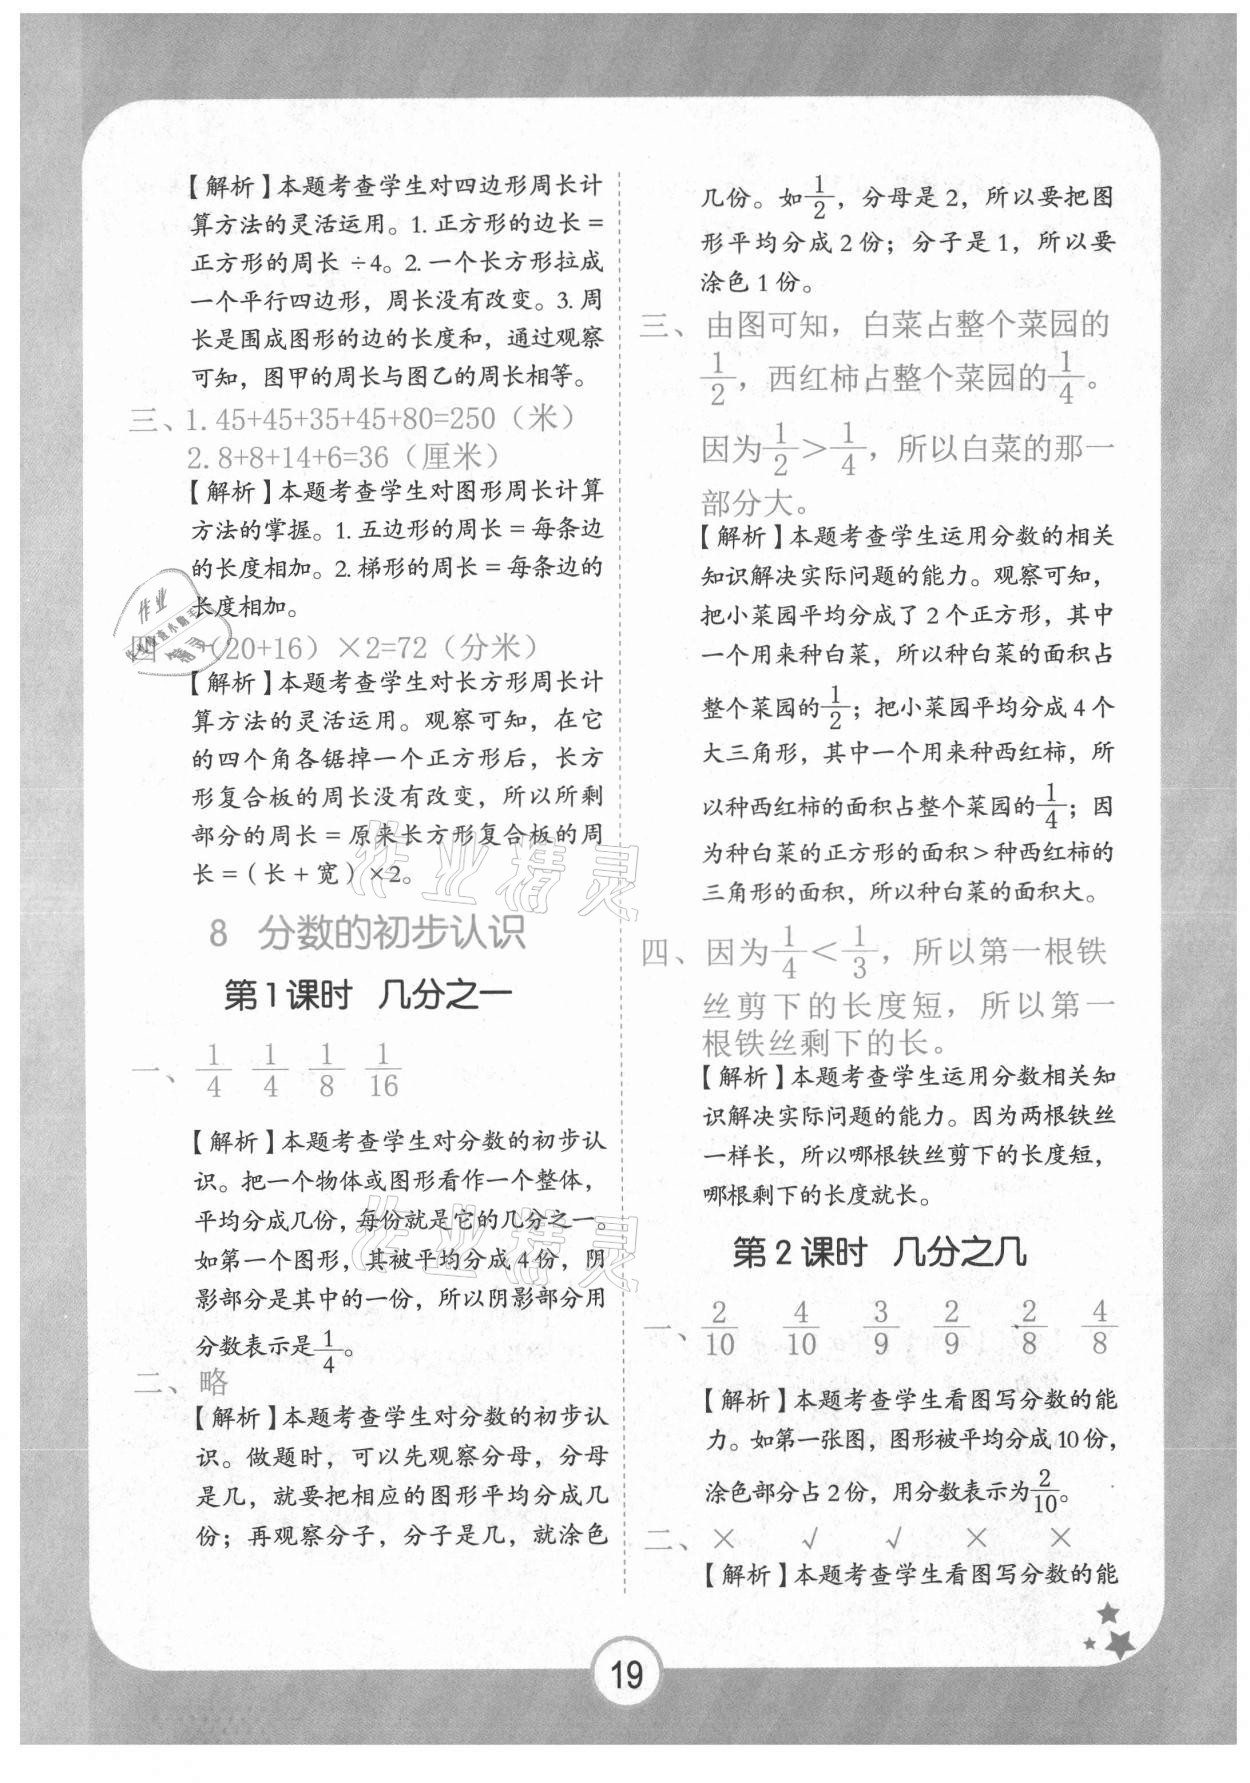 【解析】本题考查学生对四边形周长计
算方法的灵活运用。1. 正方形的边长=
正方形的周长÷4。2. 一个长方形拉成
一个平行四边形，周长没有改变。3. 周
长是围成图形的边的长度和，通过观察
可知，图甲的周长与图乙的周长相等。
三、1. 45+45+35+45+80=250（米）
2. 8+8+14+6=36（厘米）
【解析】本题考查学生对图形周长计算
方法的掌握。1. 五边形的周长=每条边
的长度相加。2. 梯形的周长=每条边的
长度相加。
四、（20+16）×2=72（分米）
【解析】本题考查学生对长方形周长计
算方法的灵活运用。观察可知，在它
的四个角各锯掉一个正方形后，长方
形复合板的周长没有改变，所以所剩
部分的周长=原来长方形复合板的周
长=(长+宽)×2。
8 分数的初步认识
第1课时 几分之一
一、1/4 1/4 1/8 1/16
【解析】本题考查学生对分数的初步认
识。把一个物体或图形看作一个整体，
平均分成几份，每份就是它的几分之一。
如第一个图形，其被平均分成4份，阴
影部分是其中的一份，所以阴影部分用
分数表示是1/4。
二、略
【解析】本题考查学生对分数的初步认
识。做题时，可以先观察分母，分母
是几，就要把相应的图形平均分成几
份；再观察分子，分子是几，就涂色
几份。如1/2，分母是2，所以要把图
形平均分成2份；分子是1，所以要
涂色1份。
三、由图可知，白菜占整个菜园的
1/2，西红柿占整个菜园的1/4。
因为1/2＞1/4，所以白菜的那一
部分大。
【解析】本题考查学生运用分数的相关
知识解决实际问题的能力。观察可知，
把小菜园平均分成了2个正方形，其中
一个用来种白菜，所以种白菜的面积占
整个菜园的1/2；把小菜园平均分成4个
大三角形，其中一个用来种西红柿，所
以种西红柿的面积占整个菜园的1/4；因
为种白菜的正方形的面积＞种西红柿的
三角形的面积，所以种白菜的面积大。
四、因为1/4＜1/3，所以第一根铁
丝剪下的长度短，所以第一
根铁丝剩下的长。
【解析】本题考查学生运用分数相关知
识解决实际问题的能力。因为两根铁丝
一样长，所以哪根铁丝剪下的长度短，
哪根剩下的长度就长。
第2课时 几分之几
一、2/10 4/10 3/9 2/9 2/8 4/8
【解析】本题考查学生看图写分数的能
力。如第一张图，图形被平均分成10份，
涂色部分占2份，用分数表示为2/10。
二、× √ √ × ×
【解析】本题考查学生看图写分数的能
19
作业精灵
作业精灵
作业
精灵